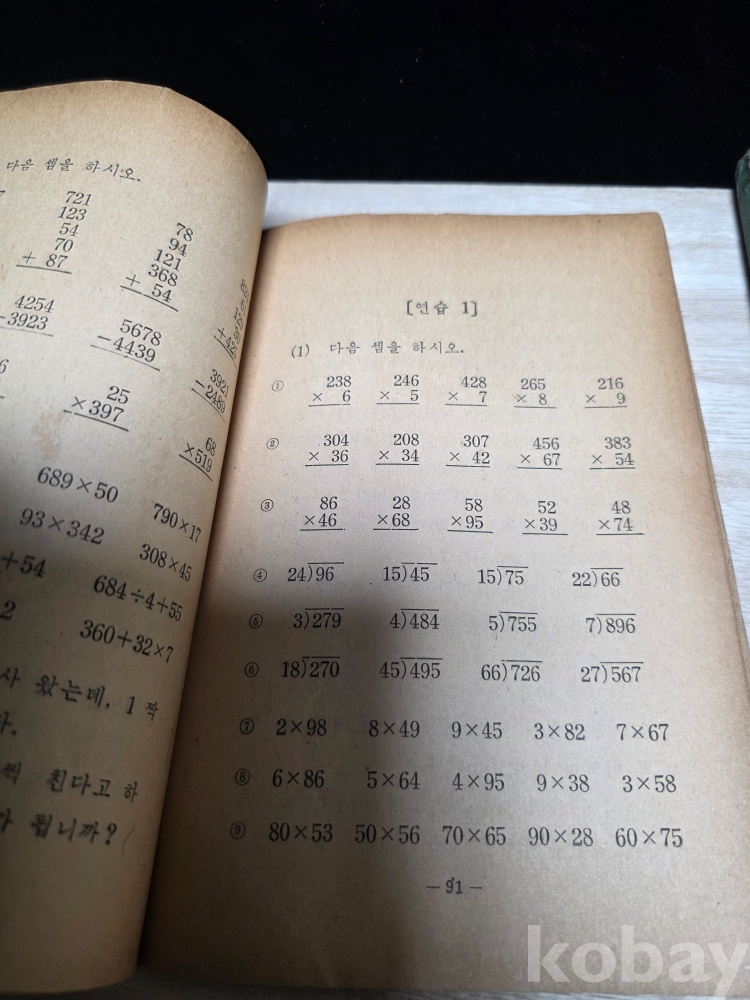 다음 셈을 하시오.
721
123
54
70
+ 87
78
94
121
368
+ 54
4254
-3923
5678
-4439
3921
25
×397
68
×519
689×50 790×17
93×342 308×45
+54 684÷4+55
2 360+32×7
사 왔는데, 1 짝
다.
씩 친다고 하
가 됩니까?
[연습 1]
(1) 다음 셈을 하시오.
① 238 246 428 265 216
× 6 × 5 × 7 × 8 × 9
② 304 208 307 456 383
× 36 × 34 × 42 × 67 × 54
③ 86 28 58 52 48
×46 ×68 ×95 ×39 ×74
④ 24)96 15)45 15)75 22)66
⑤ 3)279 4)484 5)755 7)896
⑥ 18)270 45)495 66)726 27)567
⑦ 2×98 8×49 9×45 3×82 7×67
⑧ 6×86 5×64 4×95 9×38 3×58
⑨ 80×53 50×56 70×65 90×28 60×75
— 91 —
kobay